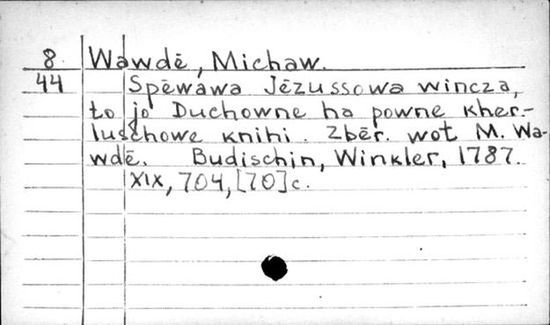 8 Wawdě, Michaw.
44 Spěwawa Jězussowa wincza,
to jo Duchowne ha powne kher-
luschowe knihi. Zběr. wot M. Wa-
wdě. Budischin, Winkler, 1787.
XIX, 704, [70] c.